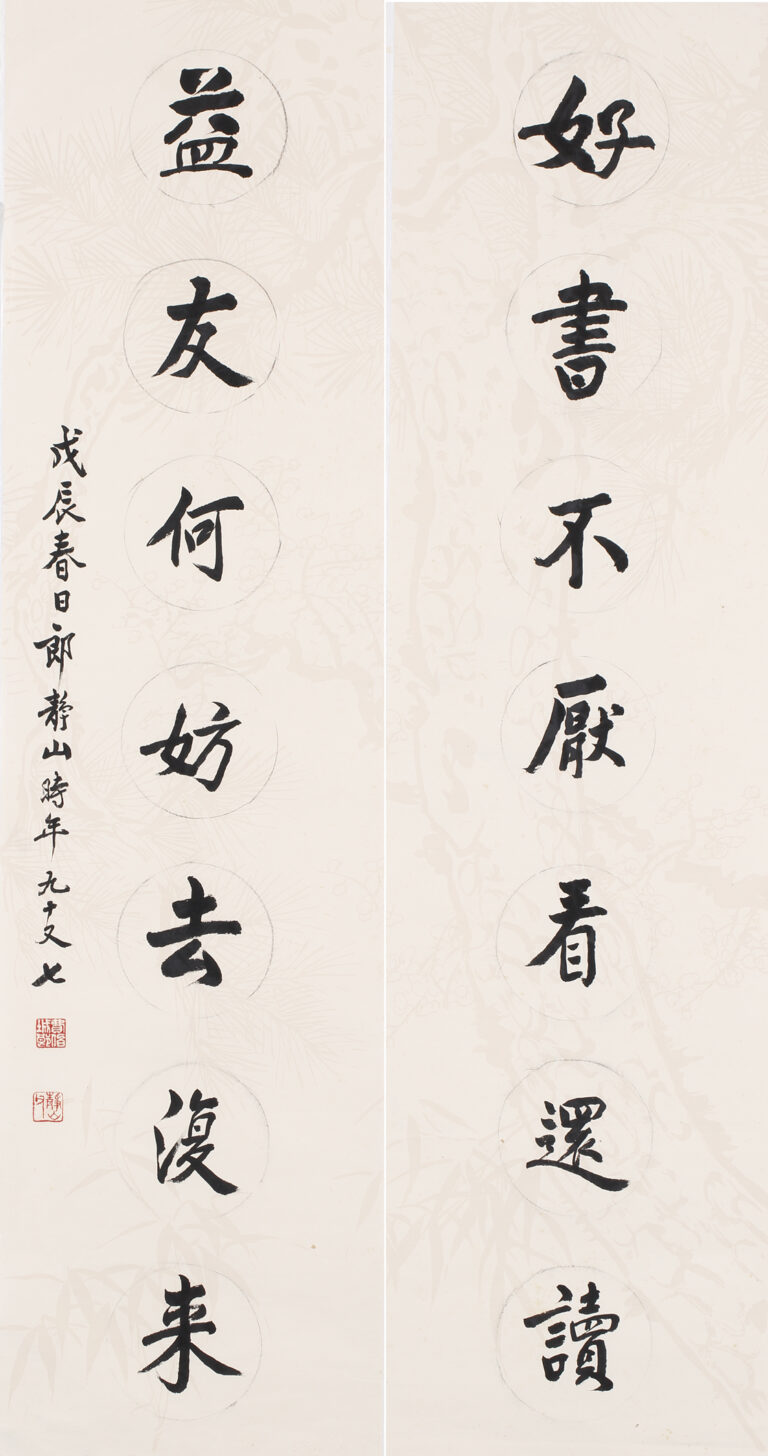 好書不厭看還讀
益友何妨去復来
戊辰春日郎静山時年九十又七